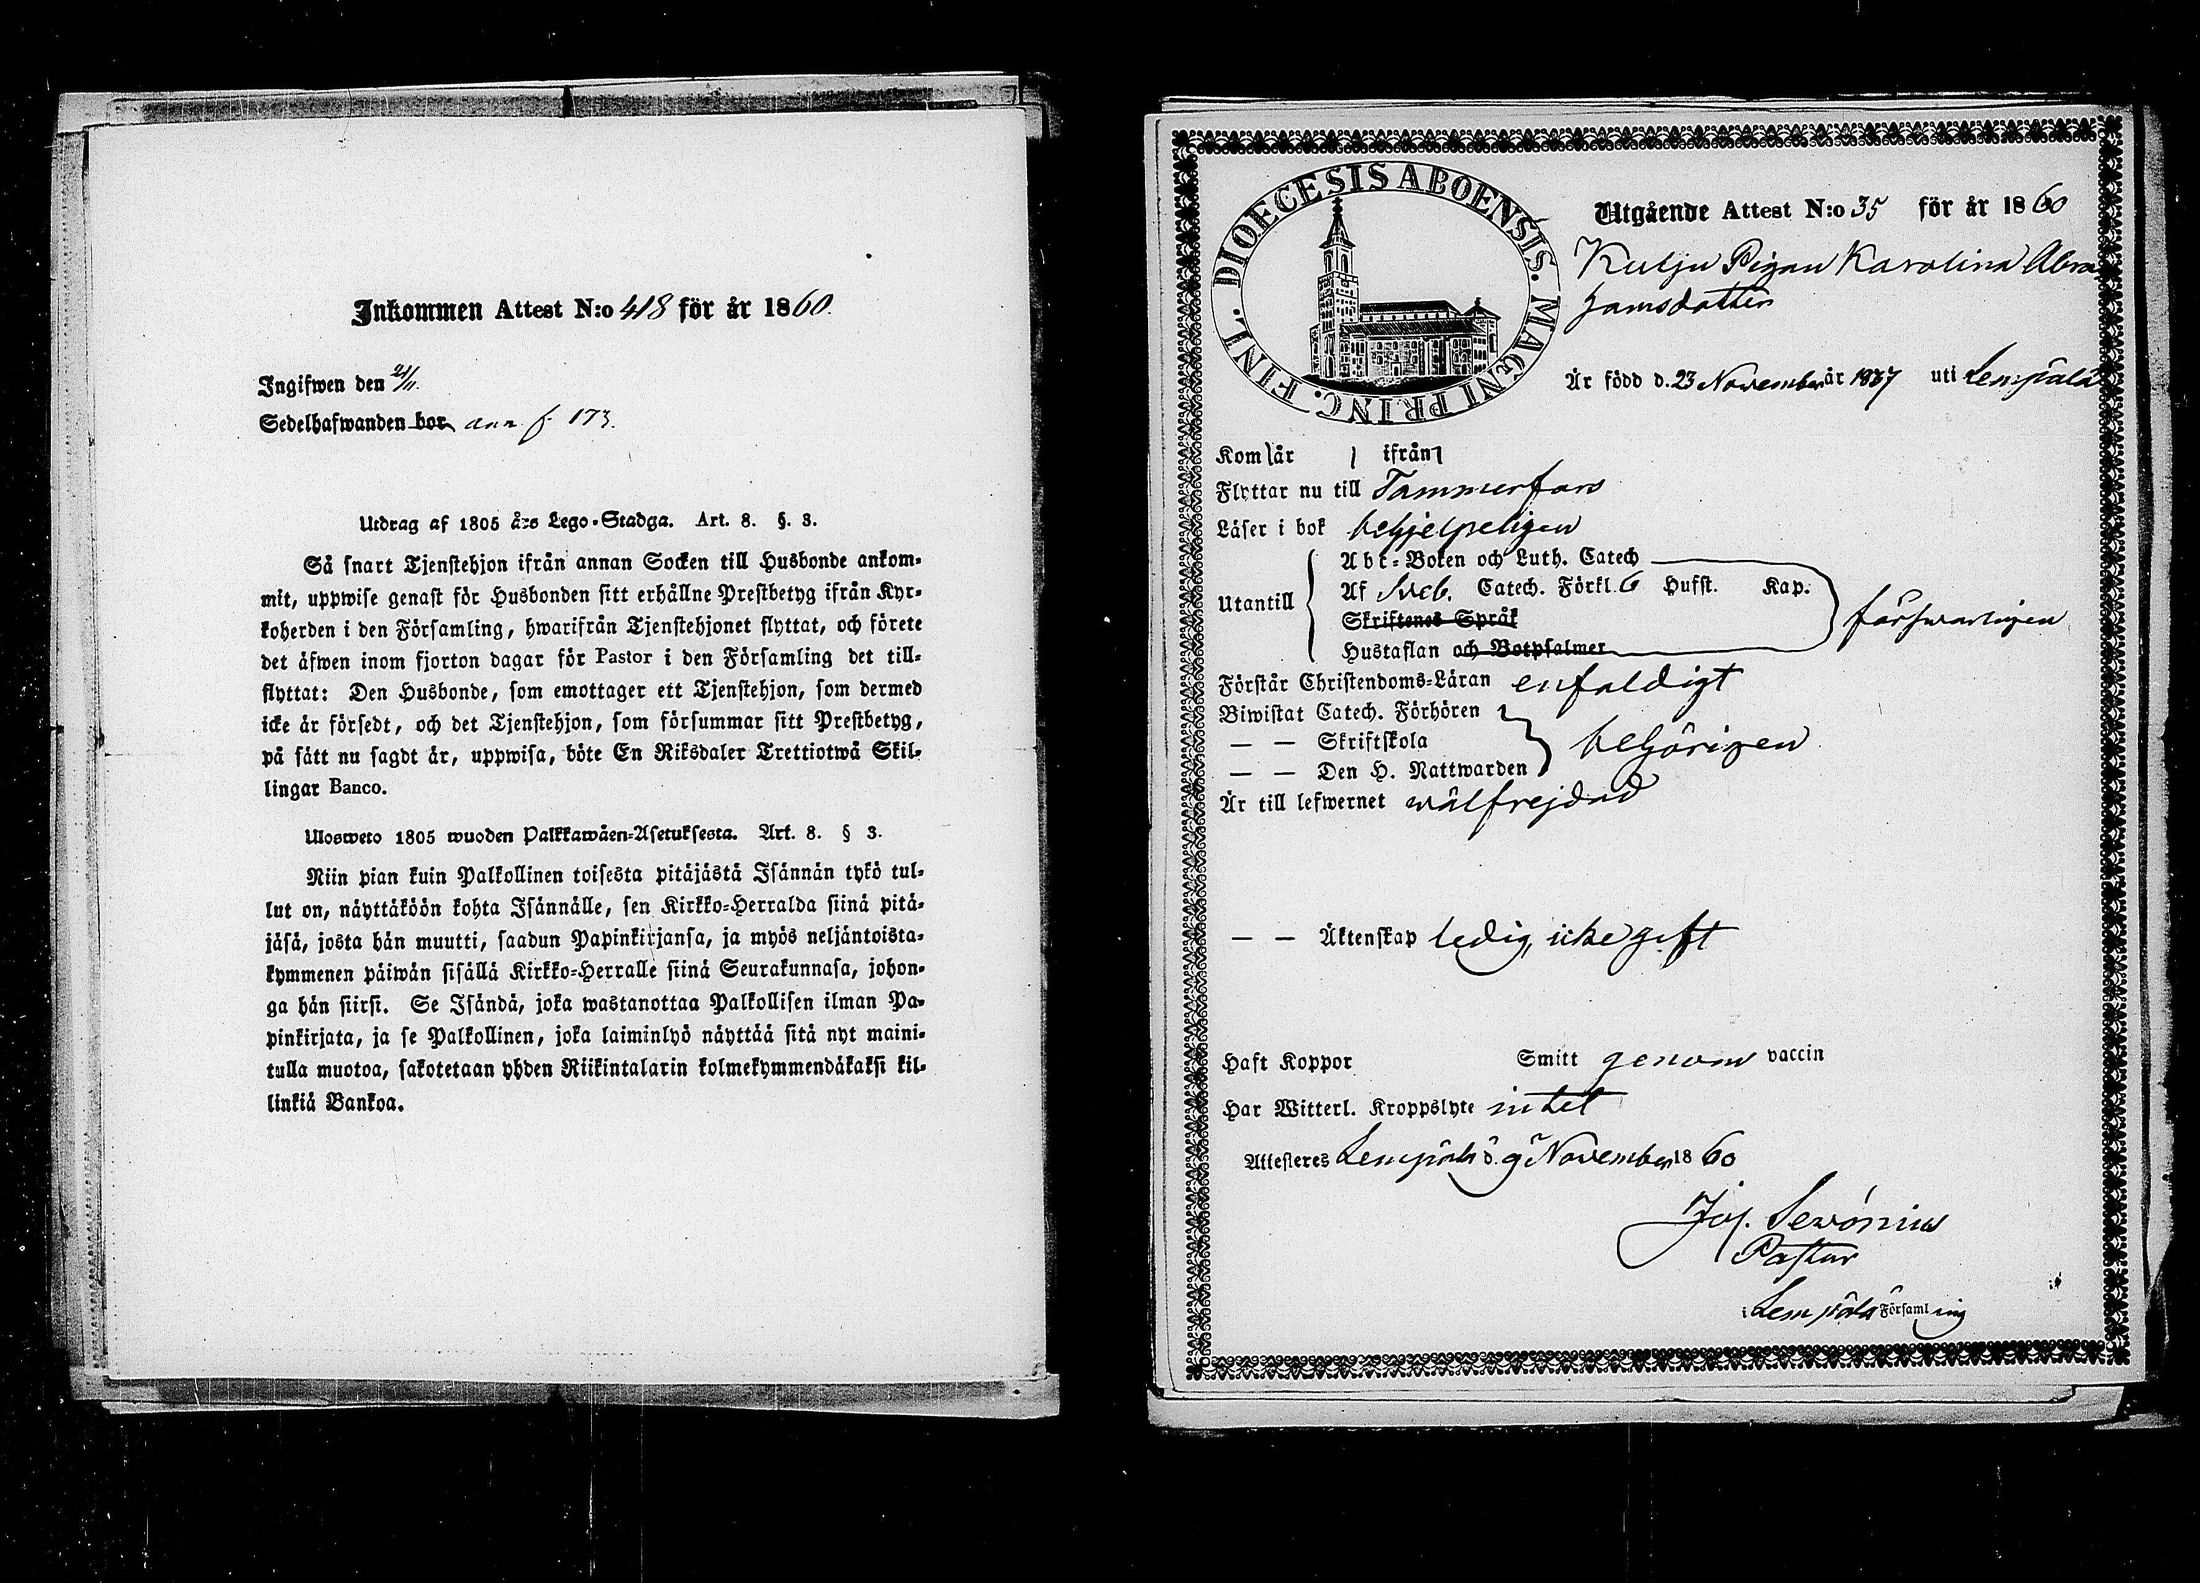 Inkommen Attest N:o 418 för år 1860.
Ingifwen den 21/11.
Sedelhafwanden bor ann f. 173.
Utdrag af 1805 års Lego-Stadga. Art. 8. §. 3.
Så snart Tjenstehjon ifrån annan Socken till Husbonde ankom-
mit, uppwise genast för Husbonden sitt erhållne Prestbetyg ifrån Kyr-
koherden i den Församling, hwarifrån Tjenstehjonet flyttat, och förete
det äfwen inom fjorton dagar för Pastor i den Församling det till-
flyttat: Den Husbonde, som emottager ett Tjenstehjon, som dermed
icke är försedt, och det Tjenstehjon, som försummar sitt Prestbetyg,
på sätt nu sagdt är, uppwisa, böte En Riksdaler Trettiotwå Skil-
lingar Banco.
Ulosweto 1805 wuoden Palkkawäen-Asetuksesta. Art. 8. § 3.
Niin pian kuin Palkollinen toisesta pitäjästä Isännän tykö tul-
lut on, näyttäköön kohta Isännälle, sen Kirkko-Herralda siinä pitä-
jäsä, josta hän muutti, saadun Papinkirjansa, ja myös neljäntoista-
kymmenen päiwän sisällä Kirkko-Herralle siinä Seurakunnasa, johon-
ga hän siirsi. Se Isändä, joka wastanottaa Palkollisen ilman Pa-
pinkirjata, ja se Palkollinen, joka laiminlyö näyttää sitä nyt maini-
tulla muotoa, sakotetaan yhden Riikintalarin kolmekymmendäkaksi kil-
linkiä Bankoa.
DIOECESIS ABOENSIS. MAGNI PRINC. FINL.
Utgående Attest N:o 35 för år 1860
Kulju Pigan Karolina Abra
hamsdotter
Är född d. 23 November år 1837 uti Lempäälä
Kom år ifrån
Flyttar nu till Tammerfors
Läser i bok behjelpeligen
Utantill
Abc-Boken och Luth. Catech
Af Sveb. Catech. Förkl. 6 Hufst. Kap.
Skriftenes Språk
Hustaflan och Botpsalmer
försvarligen
Förstår Christendoms-Läran enfaldigt
Biwistat Catech. Förhören
— — Skriftskola
— — Den H. Nattwarden
behörigen
Är till lefwernet wälfrejdad
— — Äktenskap ledig, icke gift
Haft Koppor Smitt genom vaccin
Har Witterl. Kroppslyte intet
Attesteres Lempäälä d. 9 November 1860
Jos. Sevónius
Pastor
i Lempäälä Församling